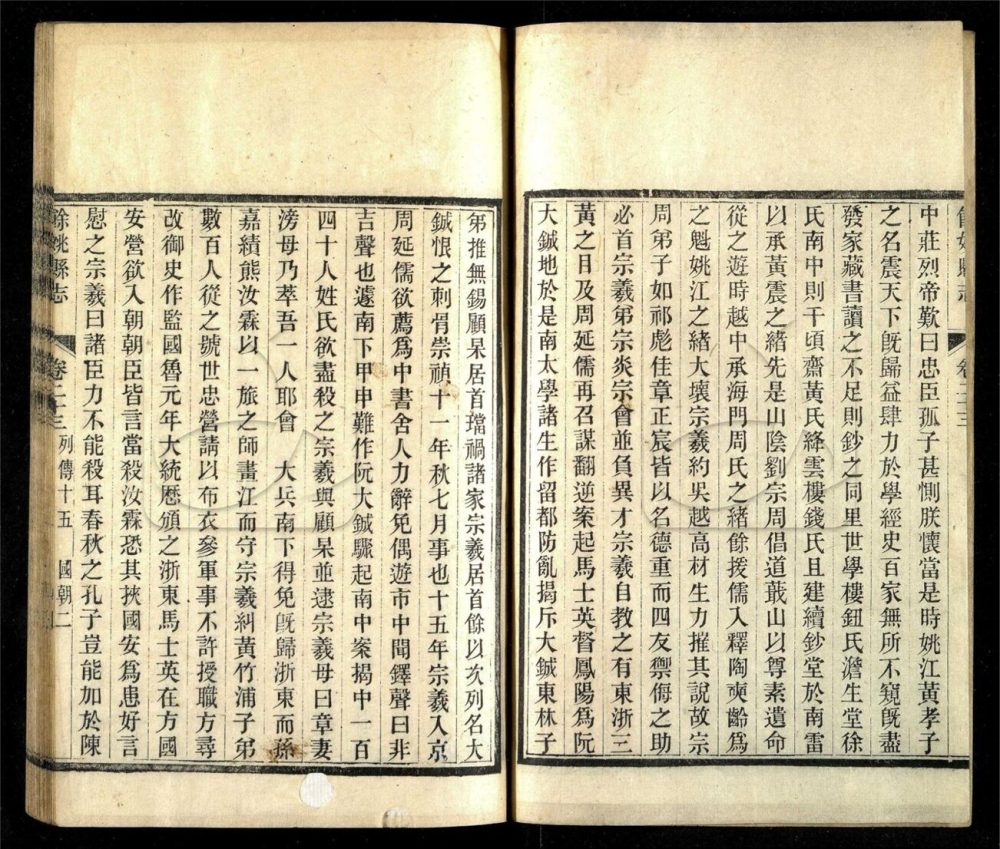 中莊烈帝歎曰忠臣孤子甚惻朕懷當是時姚江黃孝子
之名震天下旣歸益肆力於學經史百家無所不窺旣盡
發家藏書讀之不足則鈔之同里世學樓鈕氏澹生堂徐
氏南中則千頃齋黃氏絳雲樓錢氏且建續鈔堂於南雷
以承黃震之緒先是山陰劉宗周倡道蕺山以尊素遺命
從之遊時越中承海門周氏之緒餘援儒入釋陶奭齡爲
之魁姚江之緒大壞宗羲約吳越高材生力摧其說故宗
周弟子如祁彪佳章正宸皆以名德重而四友禦侮之助
必首宗羲弟宗炎宗會並負異才宗羲自教之有東浙三
黃之目及周延儒再召謀翻逆案起馬士英督鳳陽爲阮
大鋮地於是南太學諸生作留都防亂揭斥大鋮東林子
弟推無錫顧杲居首璫禍諸家宗羲居首餘以次列名大
鋮恨之刺骨崇禎十一年秋七月事也十五年宗羲入京
周延儒欲薦爲中書舍人力辭免偶遊市中聞鐸聲曰非
吉聲也遽南下甲申難作阮大鋮驟起南中案揭中一百
四十人姓氏欲盡殺之宗羲與顧杲並逮宗羲母曰章妻
滂母乃萃吾一人耶會 大兵南下得免旣歸浙東而孫
嘉績熊汝霖以一旅之師畫江而守宗羲糾黃竹浦子弟
數百人從之號世忠營請以布衣參軍事不許授職方尋
改御史作監國魯元年大統曆頒之浙東馬士英在方國
安營欲入朝朝臣皆言當殺汝霖恐其挾國安爲患好言
慰之宗羲曰諸臣力不能殺耳春秋之孔子豈能加於陳
餘姚縣志 卷二十三 列傳十五 國朝二